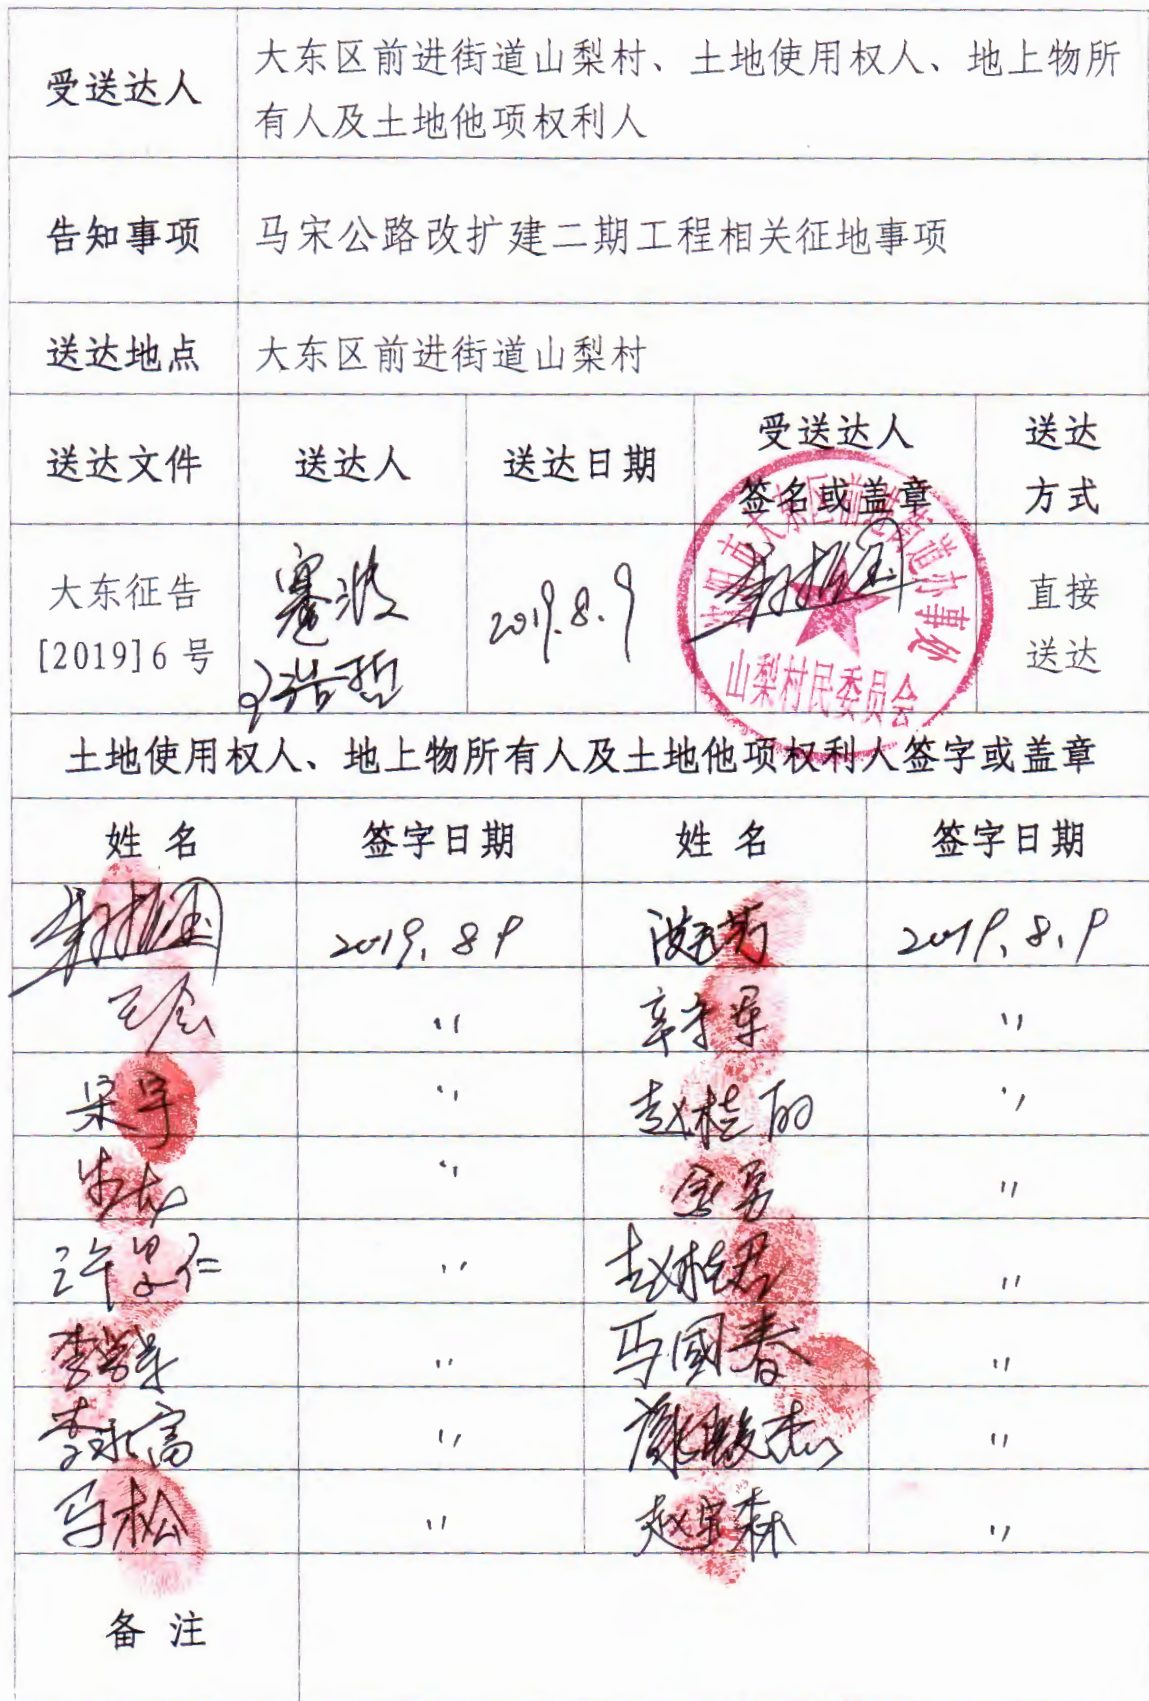 受送达人
大东区前进街道山梨村、土地使用权人、地上物所
有人及土地他项权利人
告知事项
马宋公路改扩建二期工程相关征地事项
送达地点
大东区前进街道山梨村
送达文件
送达人
送达日期
受送达人
签名或盖章
送达
方式
大东征告
[2019]6 号
2019.8.9
沈阳市大东区前进街道办事处
山梨村民委员会
直接
送达
土地使用权人、地上物所有人及土地他项权利人签字或盖章
姓 名
签字日期
姓 名
签字日期
2019.8.9
2019.8.9
〃
〃
宋宇
〃
赵桂丽
〃
〃
金勇
〃
〃
赵桂君
〃
〃
马國春
〃
李永富
〃
〃
马松
〃
赵宝森
〃
备 注